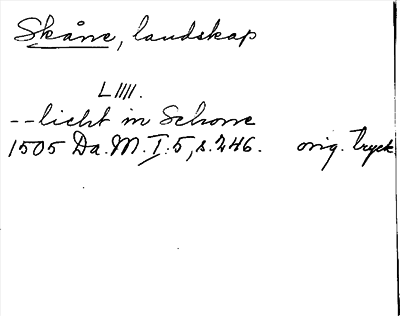 Skåne, landskap
L IIII.
-- licht in Schone
1505 Da. M. I:5, s. 246. orig. tryck